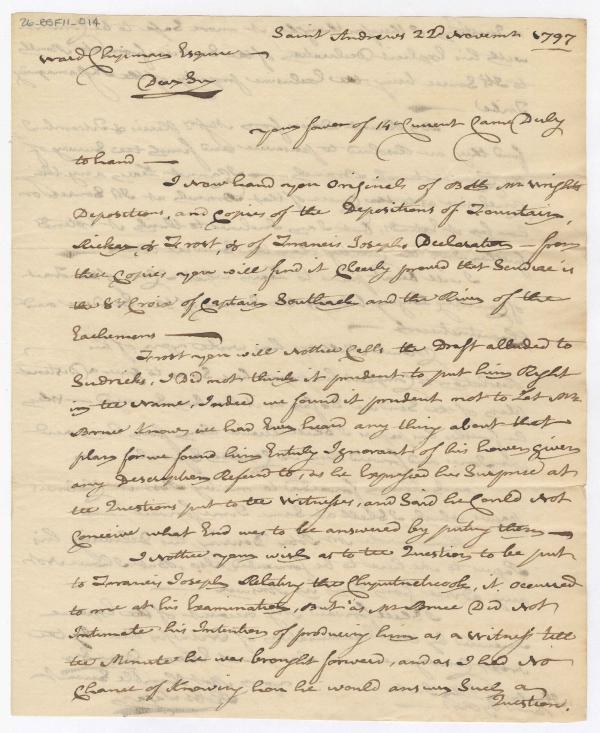 26-BSF11-014
Saint Andrews 22d Novembr 1797
Ward Chipman Esquire —
Dear Sir
your favor of 14th Current Came Duly
to hand —
I Now hand you Originals of Both Mr Wrights
Depositions, and Copies of the Depositions of Fountain,
& Frost, & of Francis Josephs Declaration — from
these Copies you will find it Clearly proved that is
the St Croix of Captain Southack and the River of the
Eachemens —
Frost you will Nottice Calls the Draft alluded to
I Did not think it prudent to put him Right
in the Name, Indeed we found it prudent not to Let Mr.
Bruce Know we had Ever heard any thing about that
plan for we found him Entirly Ignorant of his having given
any Description Referd to, as he Expressed his Surprise at
the Questions put to the Witnesses, and Said he Could Not
Conceive what End was to be answered by puting them —
I Nottice your wish as to the Question to be put
to Francis Joseph Relating the it occured
to me at his Examination, But as Mr Bruce Did Not
Intimate his Intention of producing him as a Witness till
the Minute he was brought forward, and as I had No
Chance of Knowing how he would answer Such a
Question.